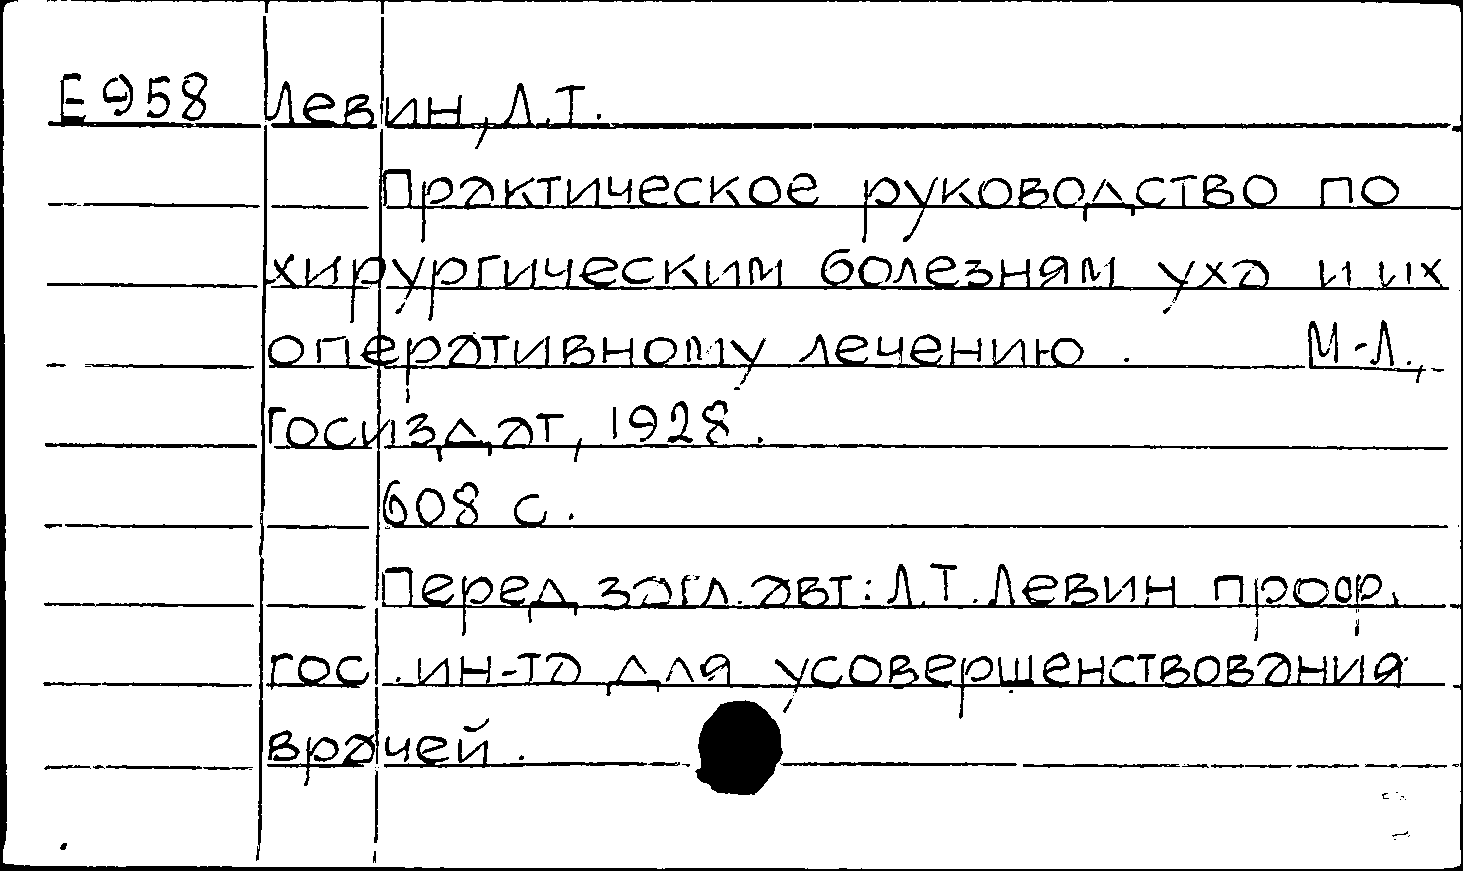 Е958 Левин, Л.Т.
Практическое руководство по
хирургическим болезням уха и их
оперативному лечению. М-Л.,
Госиздат, 1928.
608 с.
Перед загл. авт: Л.Т. Левин проф.
гос. ин-та для усовершенствования
врачей.